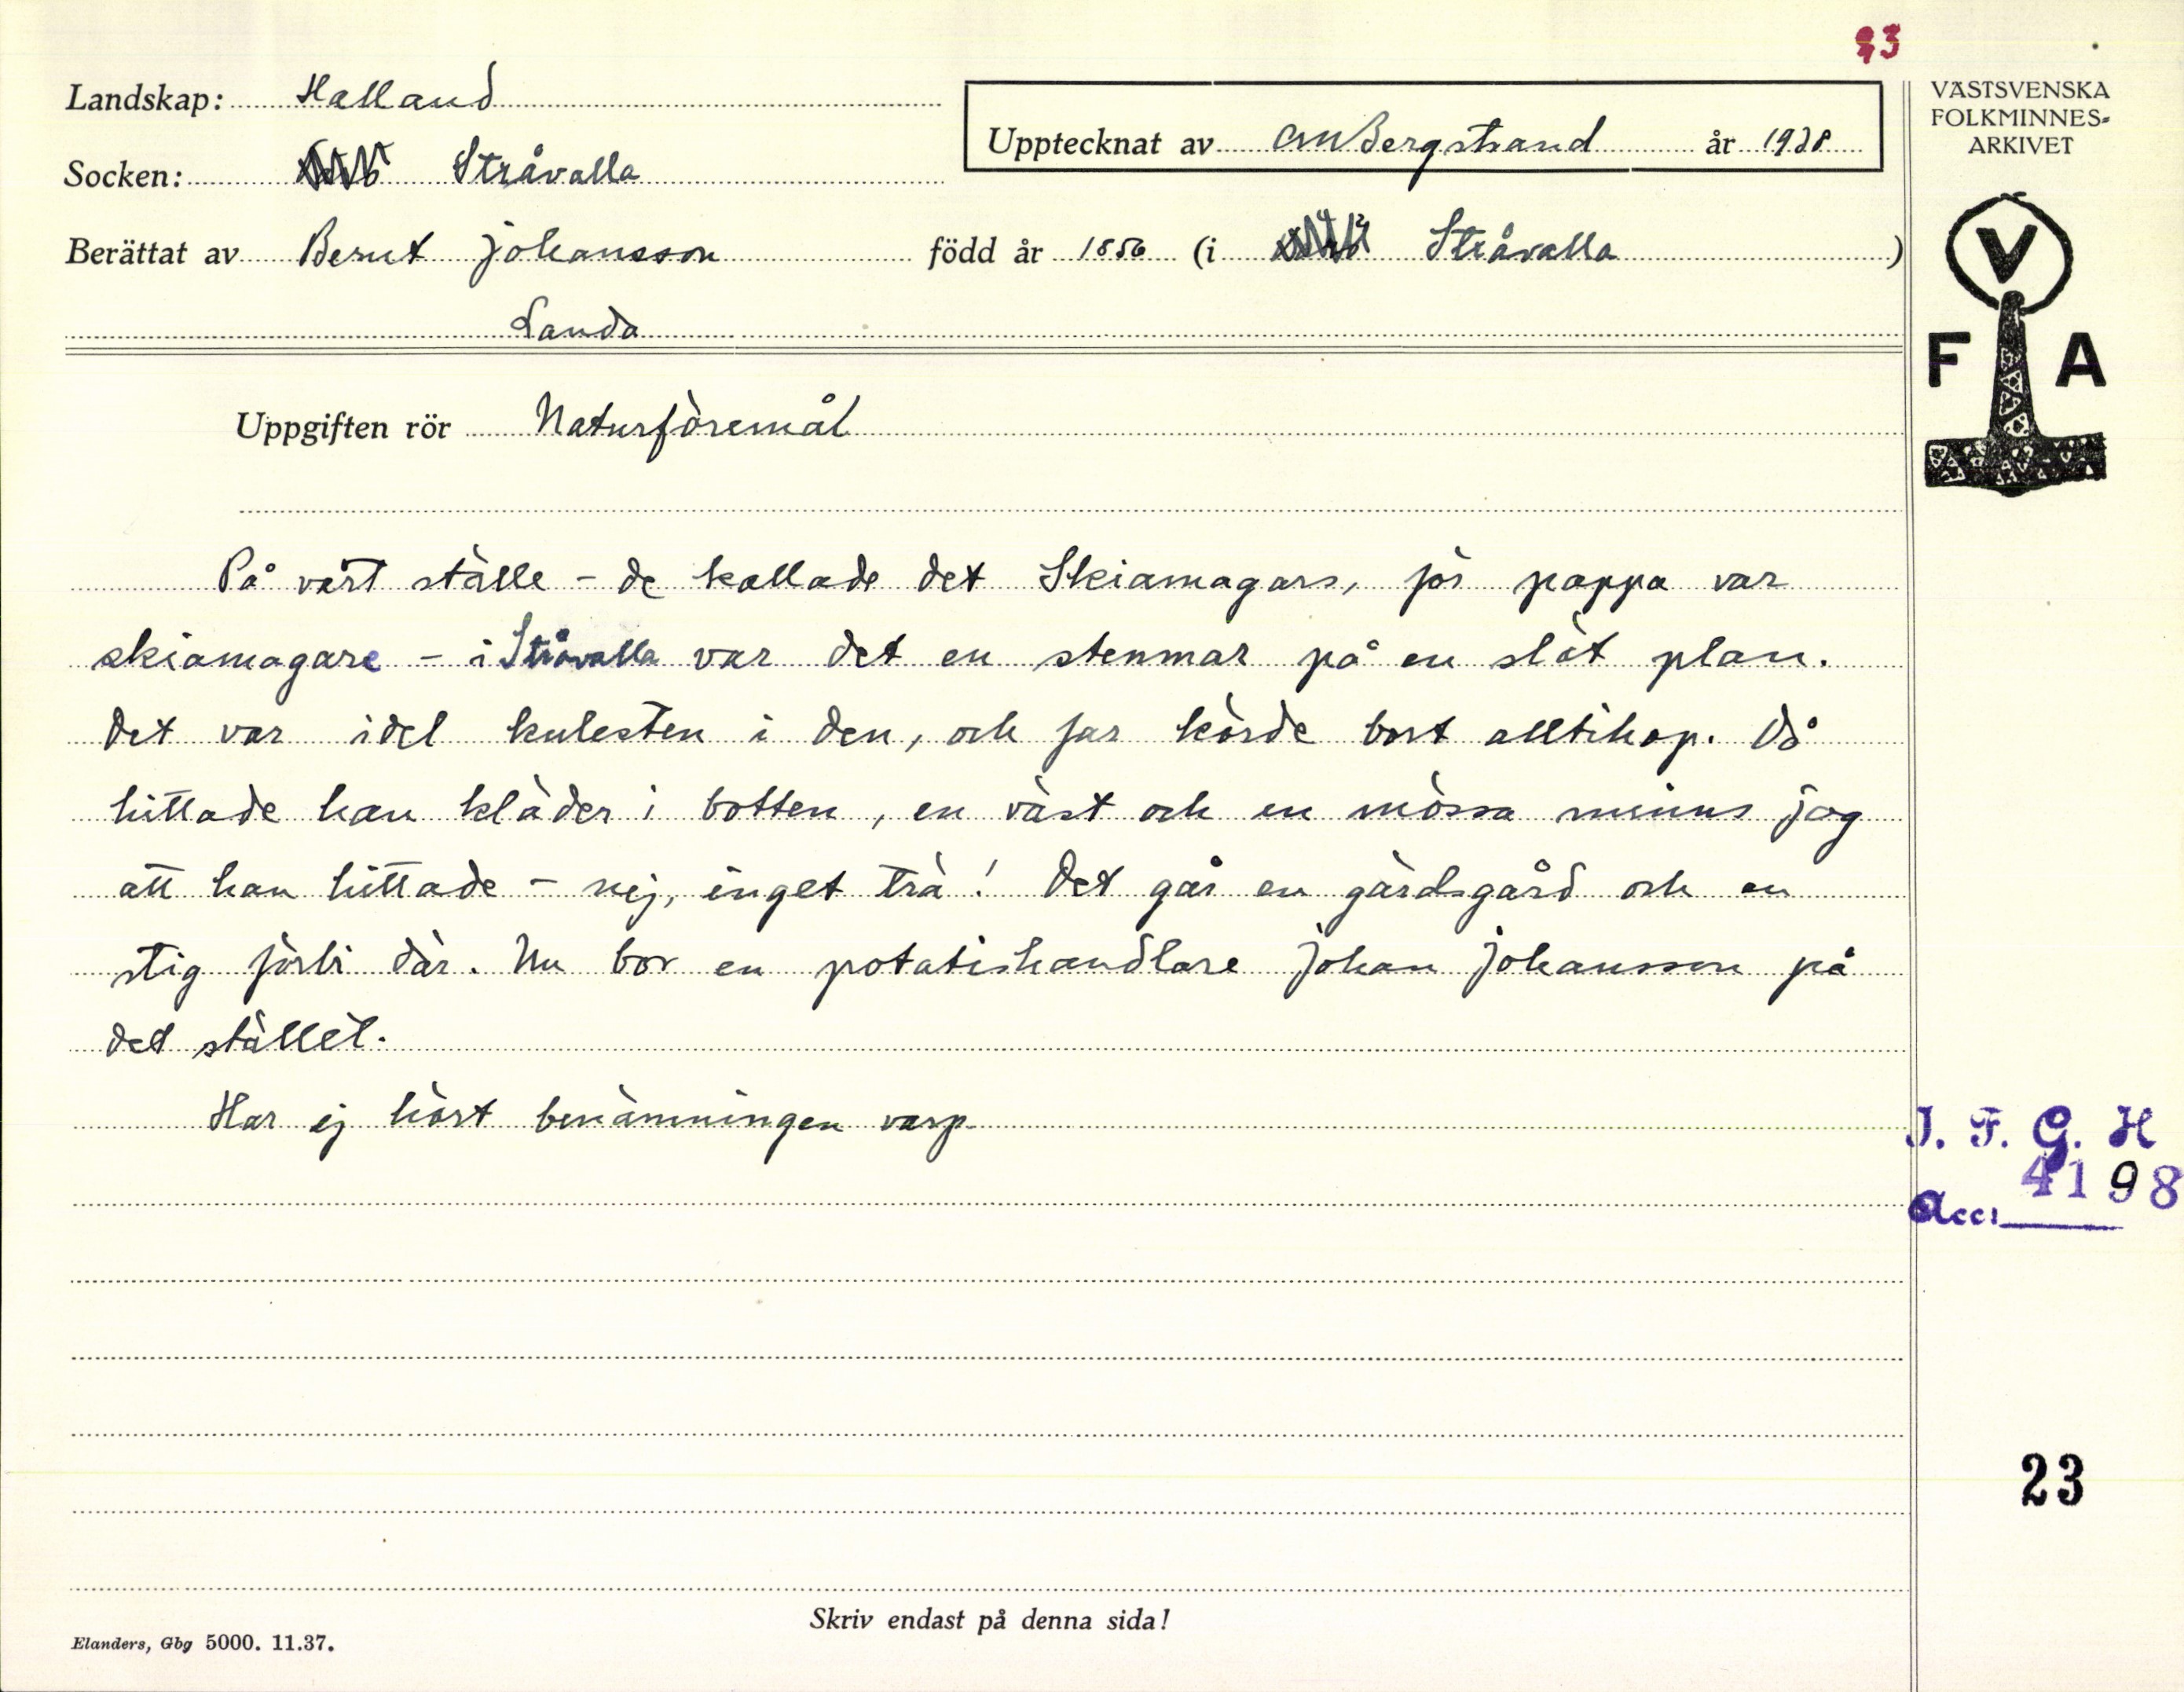 93
Landskap: Halland
Upptecknat av CMBergstrand år 1938
Socken: Stråvalla
Berättat av Bernt Johansson född år 1856 (i Stråvalla)
Landa
VÄSTSVENSKA
FOLKMINNES-
ARKIVET
V
F A
Uppgiften rör Naturföremål
På vårt ställe - de kallade det Skiamagars, för pappa var
skiamagare - i Stråvalla var det en stenmar på en slät plan.
Det var idel kulesten i den, och far körde bort alltihop. Då
hittade han kläder i botten, en väst och en mössa minns jag
att han hittade - nej, inget trä! Det går en gärdsgård och en
stig förbi där. Nu bor en potatishandlare Johan Johansson på
det stället.
Har ej hört benämningen varp.
I. F. G. H
4198
Acc:
23
Skriv endast på denna sida!
Elanders, Gbg 5000. 11.37.